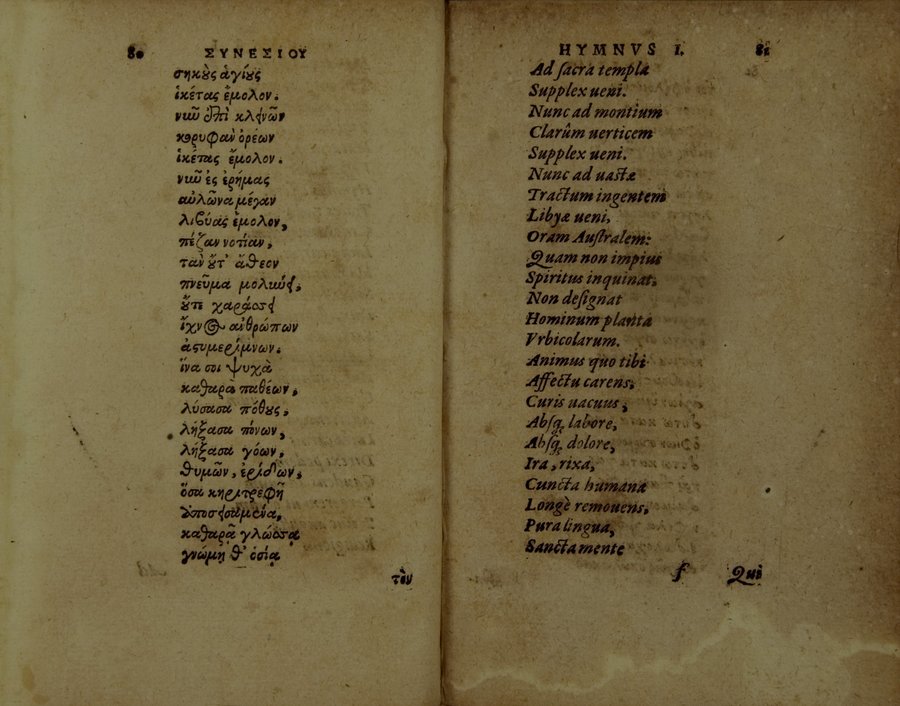 80 ΣΥΝΕΣΙΟΥ
σηκοὺς ἁγίους
ἱκέτας ἔμολον.
νῦν ἐπὶ κλεινῶν
κορυφὰν ὀρέων
ἱκέτας ἔμολον.
νῦν ἐς ἐρήμας
αὐλῶνα μέγαν
λιβύας ἔμολον,
πέζαν νοτίαν,
τὰν οὔτ' ἄθεον
πνεῦμα μολύνει,
οὔτε χαράσσει
ἴχνος ἀνθρώπων
ἀστυμερίμνων.
ἵνα σοι ψυχὰ
καθαρὰ παθέων,
λύσασα πόθους,
λήξασα πόνων,
λήξασα γόων,
θυμῶν, ἐρίδων,
ὅσα κηριτρεφῆ
ἀποσεισαμένα,
καθαρᾷ γλώσσᾳ
γνώμῃ θ' ὁσίᾳ
τὸν
HYMNVS I. 81
Ad sacra templa
Supplex ueni.
Nunc ad montium
Clarûm uerticem
Supplex ueni.
Nunc ad uastæ
Tractum ingentem
Libyæ ueni,
Oram Australem:
Quam non impius
Spiritus inquinat,
Non designat
Hominum planta
Vrbicolarum.
Animus quo tibi
Affectu carens,
Curis uacuus,
Absq; labore,
Absq; dolore,
Ira, rixa,
Cuncta humana
Longè remouens,
Pura lingua,
Sancta mente
f Qui